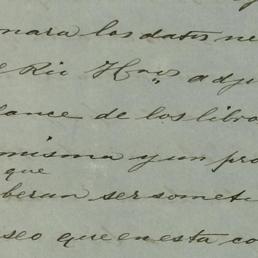 mara los datos ne
Rio Hnos, adju
lance de los libro
misma y un pro
que
beran ser somet
seo que en esta co